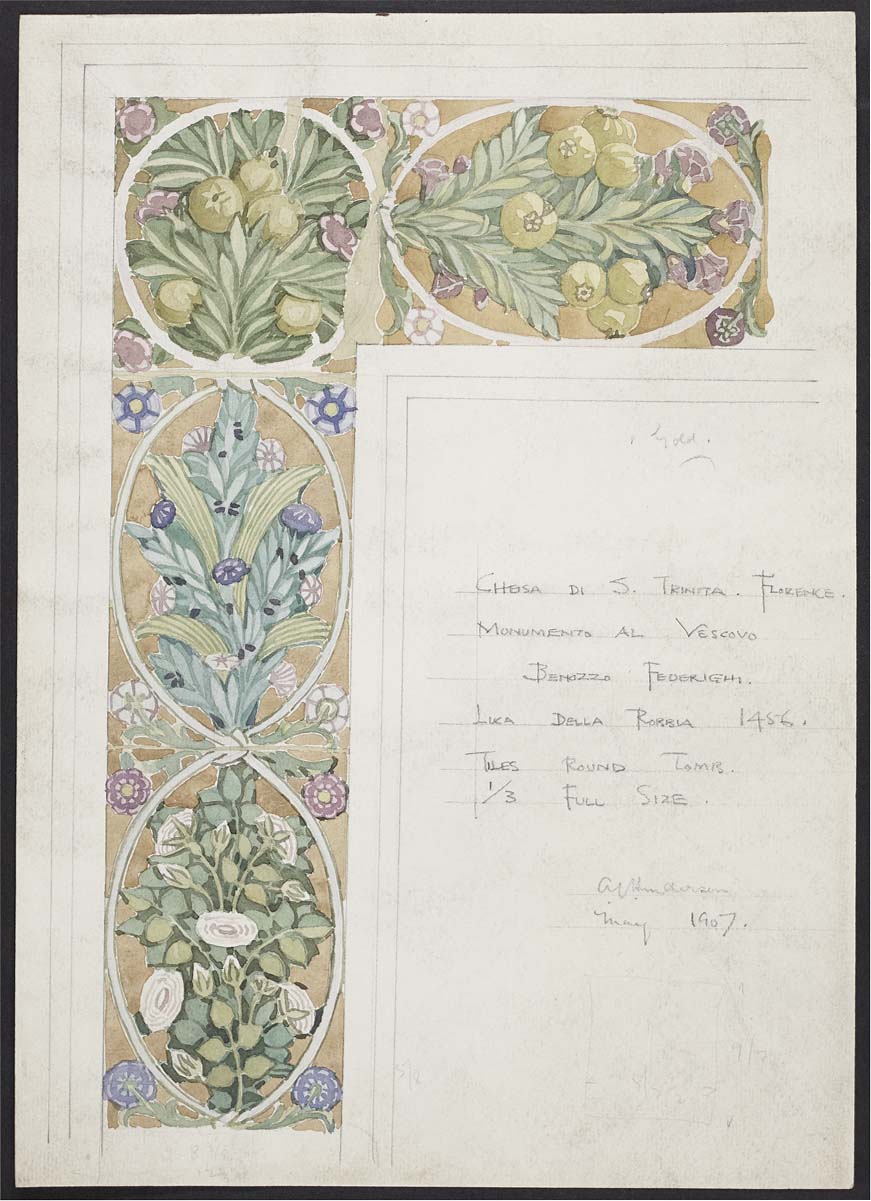 Gold.
Cheisa di S. Trinita. Florence.
Monumento al Vescovo
Benozzo Federighi.
Luca della Robbia 1456.
Tiles round Tomb.
1/3 Full Size.
May 1907.